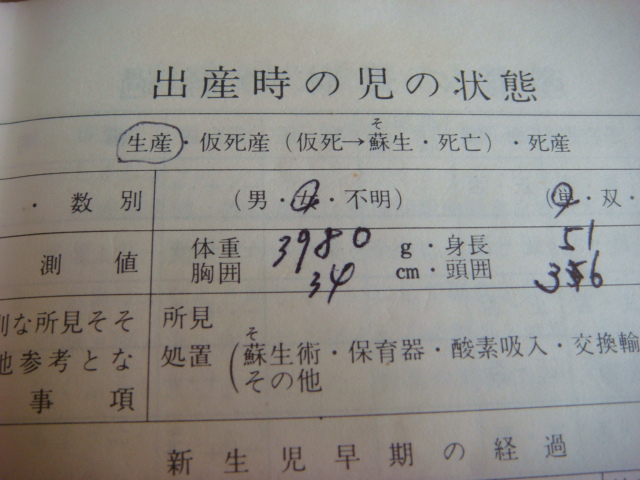 出産時の児の状態
そ
生産・仮死産（仮死→蘇生・死亡）・死産
・数別 （男・女・不明） （単・双・
測値 体重 3980 g・身長 51
胸囲 34 cm・頭囲 36
別な所見そそ 所見
そ
他参考とな 処置（蘇生術・保育器・酸素吸入・交換輸
事項 その他
新生児早期の経過